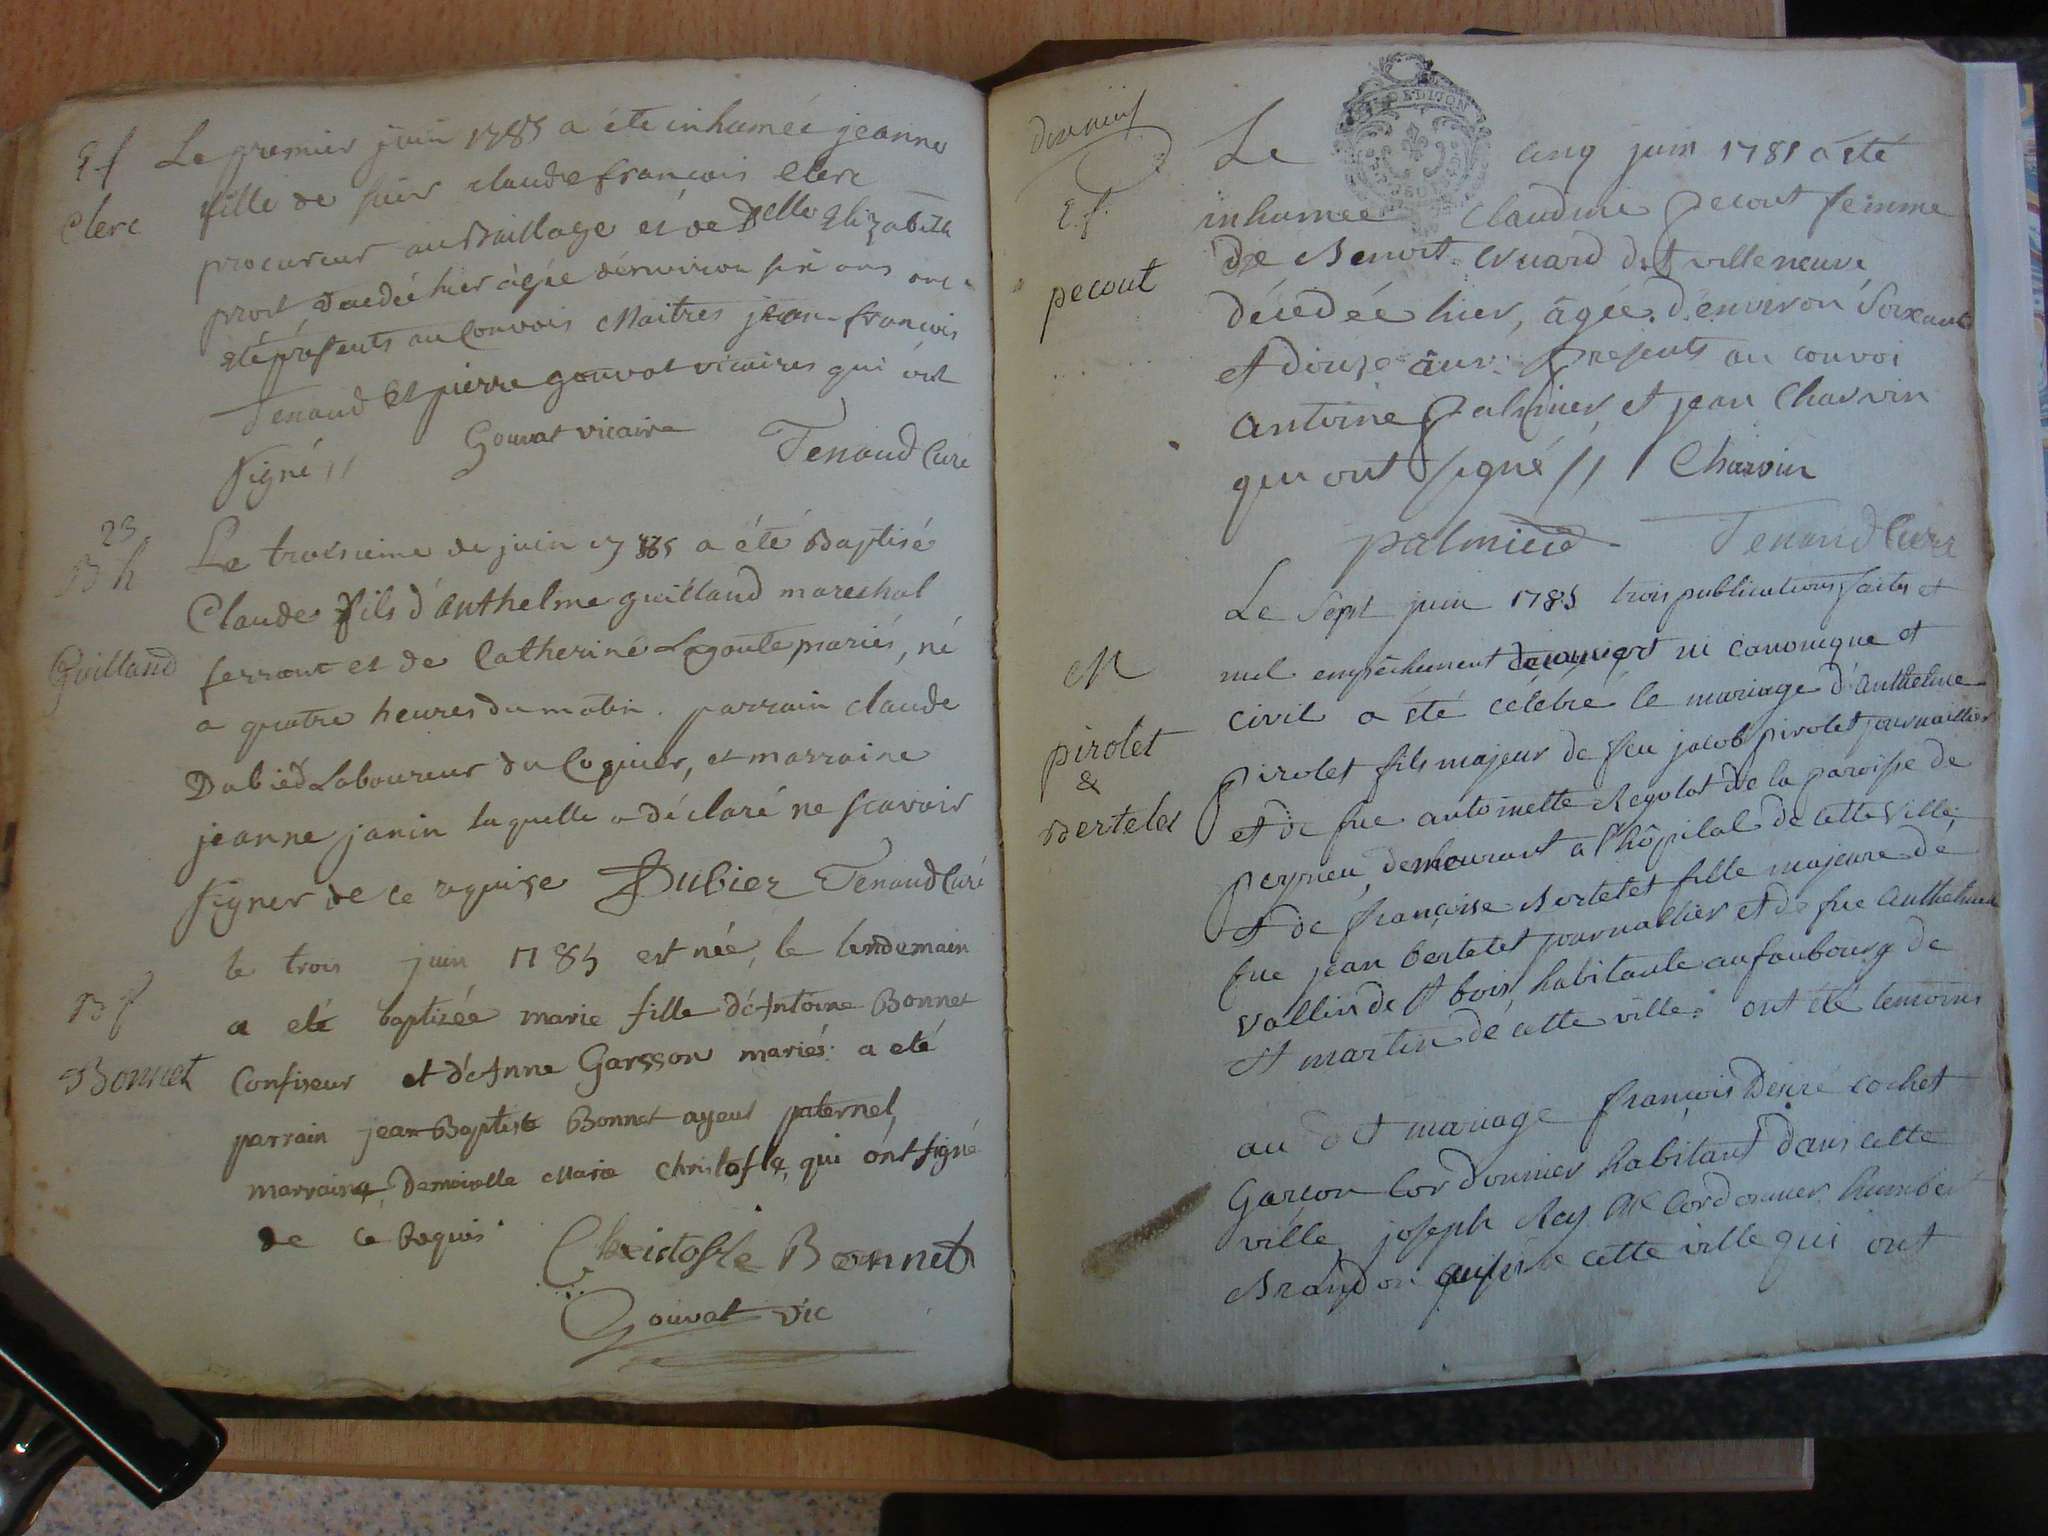 E f
Clerc
Le premier juin 1785 a été inhumée jeanne
fille de sieur claude francois clerc
procureur au Baillage et de Delle Elizabeth
décedée hier agée d'environ six ans ont
eté presents au Convois Maitres jean-francois
Tenaud et pierre gouvat vicaires qui ont
signé //
Gouvat vicaire
Tenaud Curé
23
B h
Guilland
Le troisieme de juin 1785 a été Baptisé
Claude fils d'anthelme guilland mareschal
ferrant et de Catherine Lagoute mariés, né
a quatre heures du matin. parrain claude
Dubied Laboureur du Coquier, et marraine
jeanne janin laquelle a déclaré ne scavoir
signer de ce requise Dubiez Tenaud Curé
B f
Bonnet
le trois juin 1785 est née, le lendemain
a eté baptizée marie fille d'Antoine Bonnet
Confiseur et d'Anne Garsson mariés: a eté
parrain jean Baptiste Bonnet ayeul paternel,
marraine, Demoiselle Marie Christofle, qui ont signé
de ce Requis
Christofle Bonnet
Gouvat vic
dixneuf
DE DIJON
E f.
pecout
Le cinq juin 1785 a été
inhumée Claudine pecout femme
de Benoit Cuard dit villeneuve
décedée hier, âgée d'environ Soixante
et douze ans presents au convoi
antoine palmier, et jean Charvin
qui ont signé // Charvin
palmier Tenaud Curé
M
pirolet
&
Bertelet
Le Sept juin 1785 trois publications faites et
nul empêchement ni canonique et
civil a été célébré le mariage d'anthelme
pirolet fils majeur de feu jacob pirolet journallier
et de fue antoinette Regolat de la paroisse de
peyrieu, demeurant a l'hôpital de cette ville,
et de françoise Bertelet fille majeure de
fue jean bertelet journallier et de fue anthelmette
vallin de St bois, habitante au faubourg de
St martin de cette ville: ont été temoins
au dit mariage françois Desiré cochet
Garcon Cordonnier habitant dans cette
ville joseph Rey Me Cordonnier humbert
Brandon cette ville qui ont